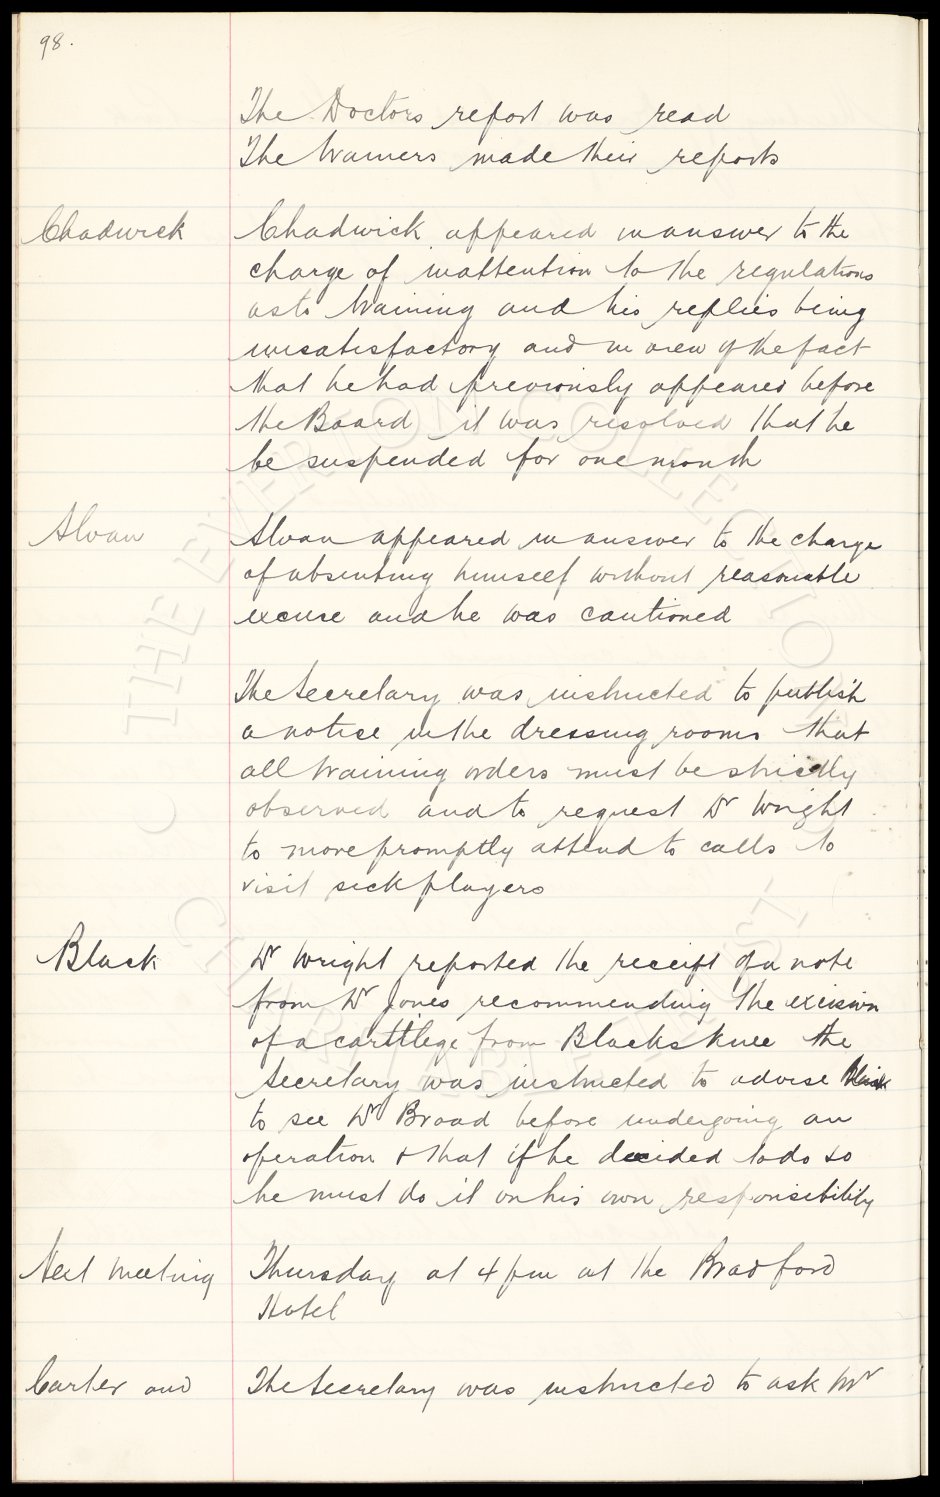 98.
The Doctors report was read
The trainers made their reports
Chadwick
Chadwick appeared in answer to the
charge of inattention to the regulations
as to training and his replies being
unsatisfactory and in view of the fact
that he had previously appeared before
the Board it was resolved that he
be suspended for one month
Sloan
Sloan appeared in answer to the charge
of absenting himself without reasonable
excuse and he was cautioned
The Secretary was instructed to publish
a notice in the dressing rooms that
all training orders must be strictly
observed and to request Dr Wright
to more promptly attend to calls to
visit sick players
Black
Dr Wright reported the receipt of a note
from Dr Jones recommending the excision
of a carttlege from Blacks knee the
Secretary was instructed to advise Black
to see Dr Broad before undergoing an
operation & that if he decided to do so
he must do it on his own responsibility
Next meeting
Thursday at 4 pm at the Bradford
Hotel
Carter and
The Secretary was instructed to ask Mr
© THE EVERTON COLLECTION
CHARITABLE TRUST